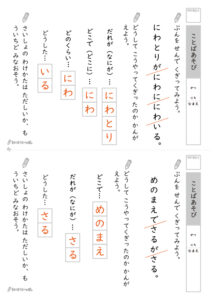 ことばあそび
ぶんを せんで くぎってみよう。
にわとりが にわに にわ いる。
どうして こうやってくぎったのか かんがえよう。
だれが(なにが)… にわとり
どこで(どこに)… にわ
どのくらい… にわ
どうした… いる
さいしょの わけかたは ただしいか、もういちど みなおそう。
ことばあそび
ぶんを せんで くぎってみよう。
めのまえで さるが さる。
どうして こうやってくぎったのか かんがえよう。
どこで… めのまえ
だれが(なにが)… さる
どうした… さる
さいしょの わけかたは ただしいか、もういちど みなおそう。